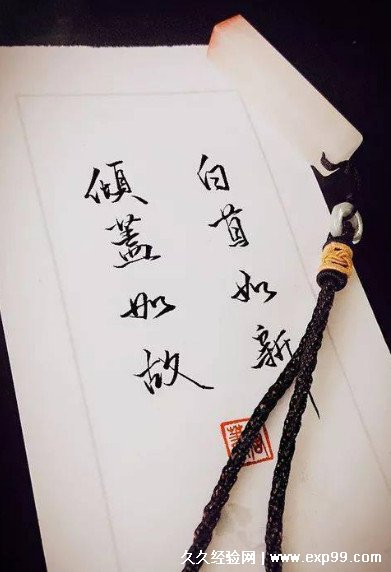 白首如新
傾蓋如故
久久经验网 www.exp99.com